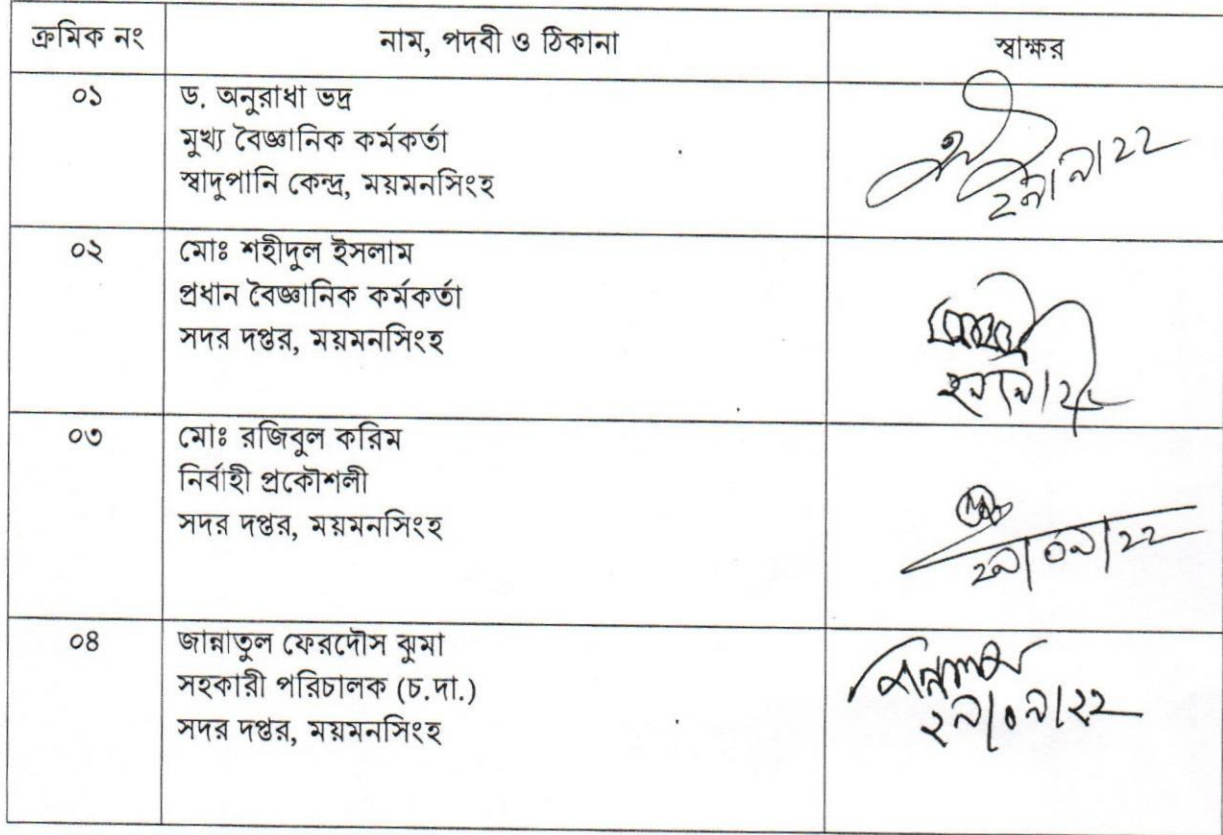 ক্রমিক নং নাম, পদবী ও ঠিকানা স্বাক্ষর
০১ ড. অনুরাধা ভদ্র
মুখ্য বৈজ্ঞানিক কর্মকর্তা
স্বাদুপানি কেন্দ্র, ময়মনসিংহ
২৯।৯।২২
০২ মোঃ শহীদুল ইসলাম
প্রধান বৈজ্ঞানিক কর্মকর্তা
সদর দপ্তর, ময়মনসিংহ
০৩ মোঃ রজিবুল করিম
নির্বাহী প্রকৌশলী
সদর দপ্তর, ময়মনসিংহ
২৯|০৯|২২
০৪ জান্নাতুল ফেরদৌস ঝুমা
সহকারী পরিচালক (চ.দা.)
সদর দপ্তর, ময়মনসিংহ
২৯|০৯|২২